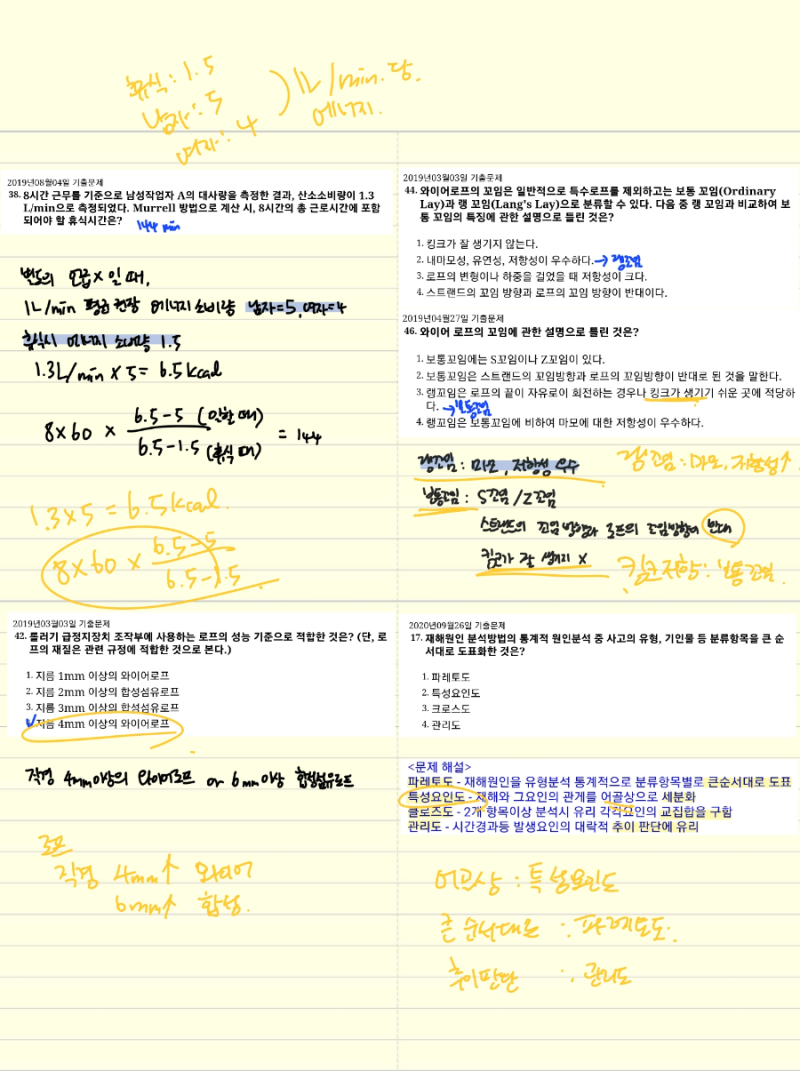 휴식 : 1.5
남자 : 5
여자 : 4
) 1L/min. 당.
에너지.
2019년08월04일 기출문제
38. 8시간 근무를 기준으로 남성작업자 A의 대사량을 측정한 결과, 산소소비량이 1.3
L/min으로 측정되었다. Murrell 방법으로 계산 시, 8시간의 총 근로시간에 포함
되어야 할 휴식시간은? 144 min
별도의 언급 X 일 때,
1L/min 평균 권장 에너지 소비량 남자=5, 여자=4
휴식시 에너지 소비량 1.5
1.3L/min × 5 = 6.5kcal
8×60 × 6.5-5 (일할 때) / 6.5-1.5 (휴식 때) = 144
1.3×5 = 6.5kcal.
8×60 × 6.5-5 / 6.5-1.5
2019년03월03일 기출문제
42. 롤러기 급정지장치 조작부에 사용하는 로프의 성능 기준으로 적합한 것은? (단, 로
프의 재질은 관련 규정에 적합한 것으로 본다.)
1. 지름 1mm 이상의 와이어로프
2. 지름 2mm 이상의 합성섬유로프
3. 지름 3mm 이상의 합성섬유로프
✓ 지름 4mm 이상의 와이어로프
직경 4mm이상의 와이어로프 or 6mm이상 합성섬유로프
로프
직경 4mm↑ 와이어
6mm↑ 합성.
2019년03월03일 기출문제
44. 와이어로프의 꼬임은 일반적으로 특수로프를 제외하고는 보통 꼬임(Ordinary
Lay)과 랭 꼬임(Lang's Lay)으로 분류할 수 있다. 다음 중 랭 꼬임과 비교하여 보
통 꼬임의 특징에 관한 설명으로 틀린 것은?
1. 킹크가 잘 생기지 않는다.
2. 내마모성, 유연성, 저항성이 우수하다. → 랭꼬임
3. 로프의 변형이나 하중을 걸었을 때 저항성이 크다.
4. 스트랜드의 꼬임 방향과 로프의 꼬임 방향이 반대이다.
2019년04월27일 기출문제
46. 와이어 로프의 꼬임에 관한 설명으로 틀린 것은?
1. 보통꼬임에는 S꼬임이나 Z꼬임이 있다.
2. 보통꼬임은 스트랜드의 꼬임방향과 로프의 꼬임방향이 반대로 된 것을 말한다.
3. 랭꼬임은 로프의 끝이 자유로이 회전하는 경우나 킹크가 생기기 쉬운 곳에 적당하
다. → 보통꼬임
4. 랭꼬임은 보통꼬임에 비하여 마모에 대한 저항성이 우수하다.
랭꼬임 : 마모, 저항성 우수
랭꼬임 : 마모, 저항성↑
보통꼬임 : S꼬임/Z꼬임
스트랜드의 꼬임 방향과 로프의 꼬임방향이 반대
킹크가 잘 생기지 X
킹크저항 : 보통꼬임.
2020년09월26일 기출문제
17. 재해원인 분석방법의 통계적 원인분석 중 사고의 유형, 기인물 등 분류항목을 큰 순
서대로 도표화한 것은?
1. 파레토도
2. 특성요인도
3. 크로스도
4. 관리도
<문제 해설>
파레토도 - 재해원인을 유형분석 통계적으로 분류항목별로 큰순서대로 도표
특성요인도 - 재해와 그요인의 관게를 어골상으로 세분화
클로즈도 - 2개 항목이상 분석시 유리 각각요인의 교집합을 구함
관리도 - 시간경과등 발생요인의 대략적 추이 판단에 유리
어골상 : 특성요인도
큰 순서대로 : 파레토도.
추이판단 : 관리도